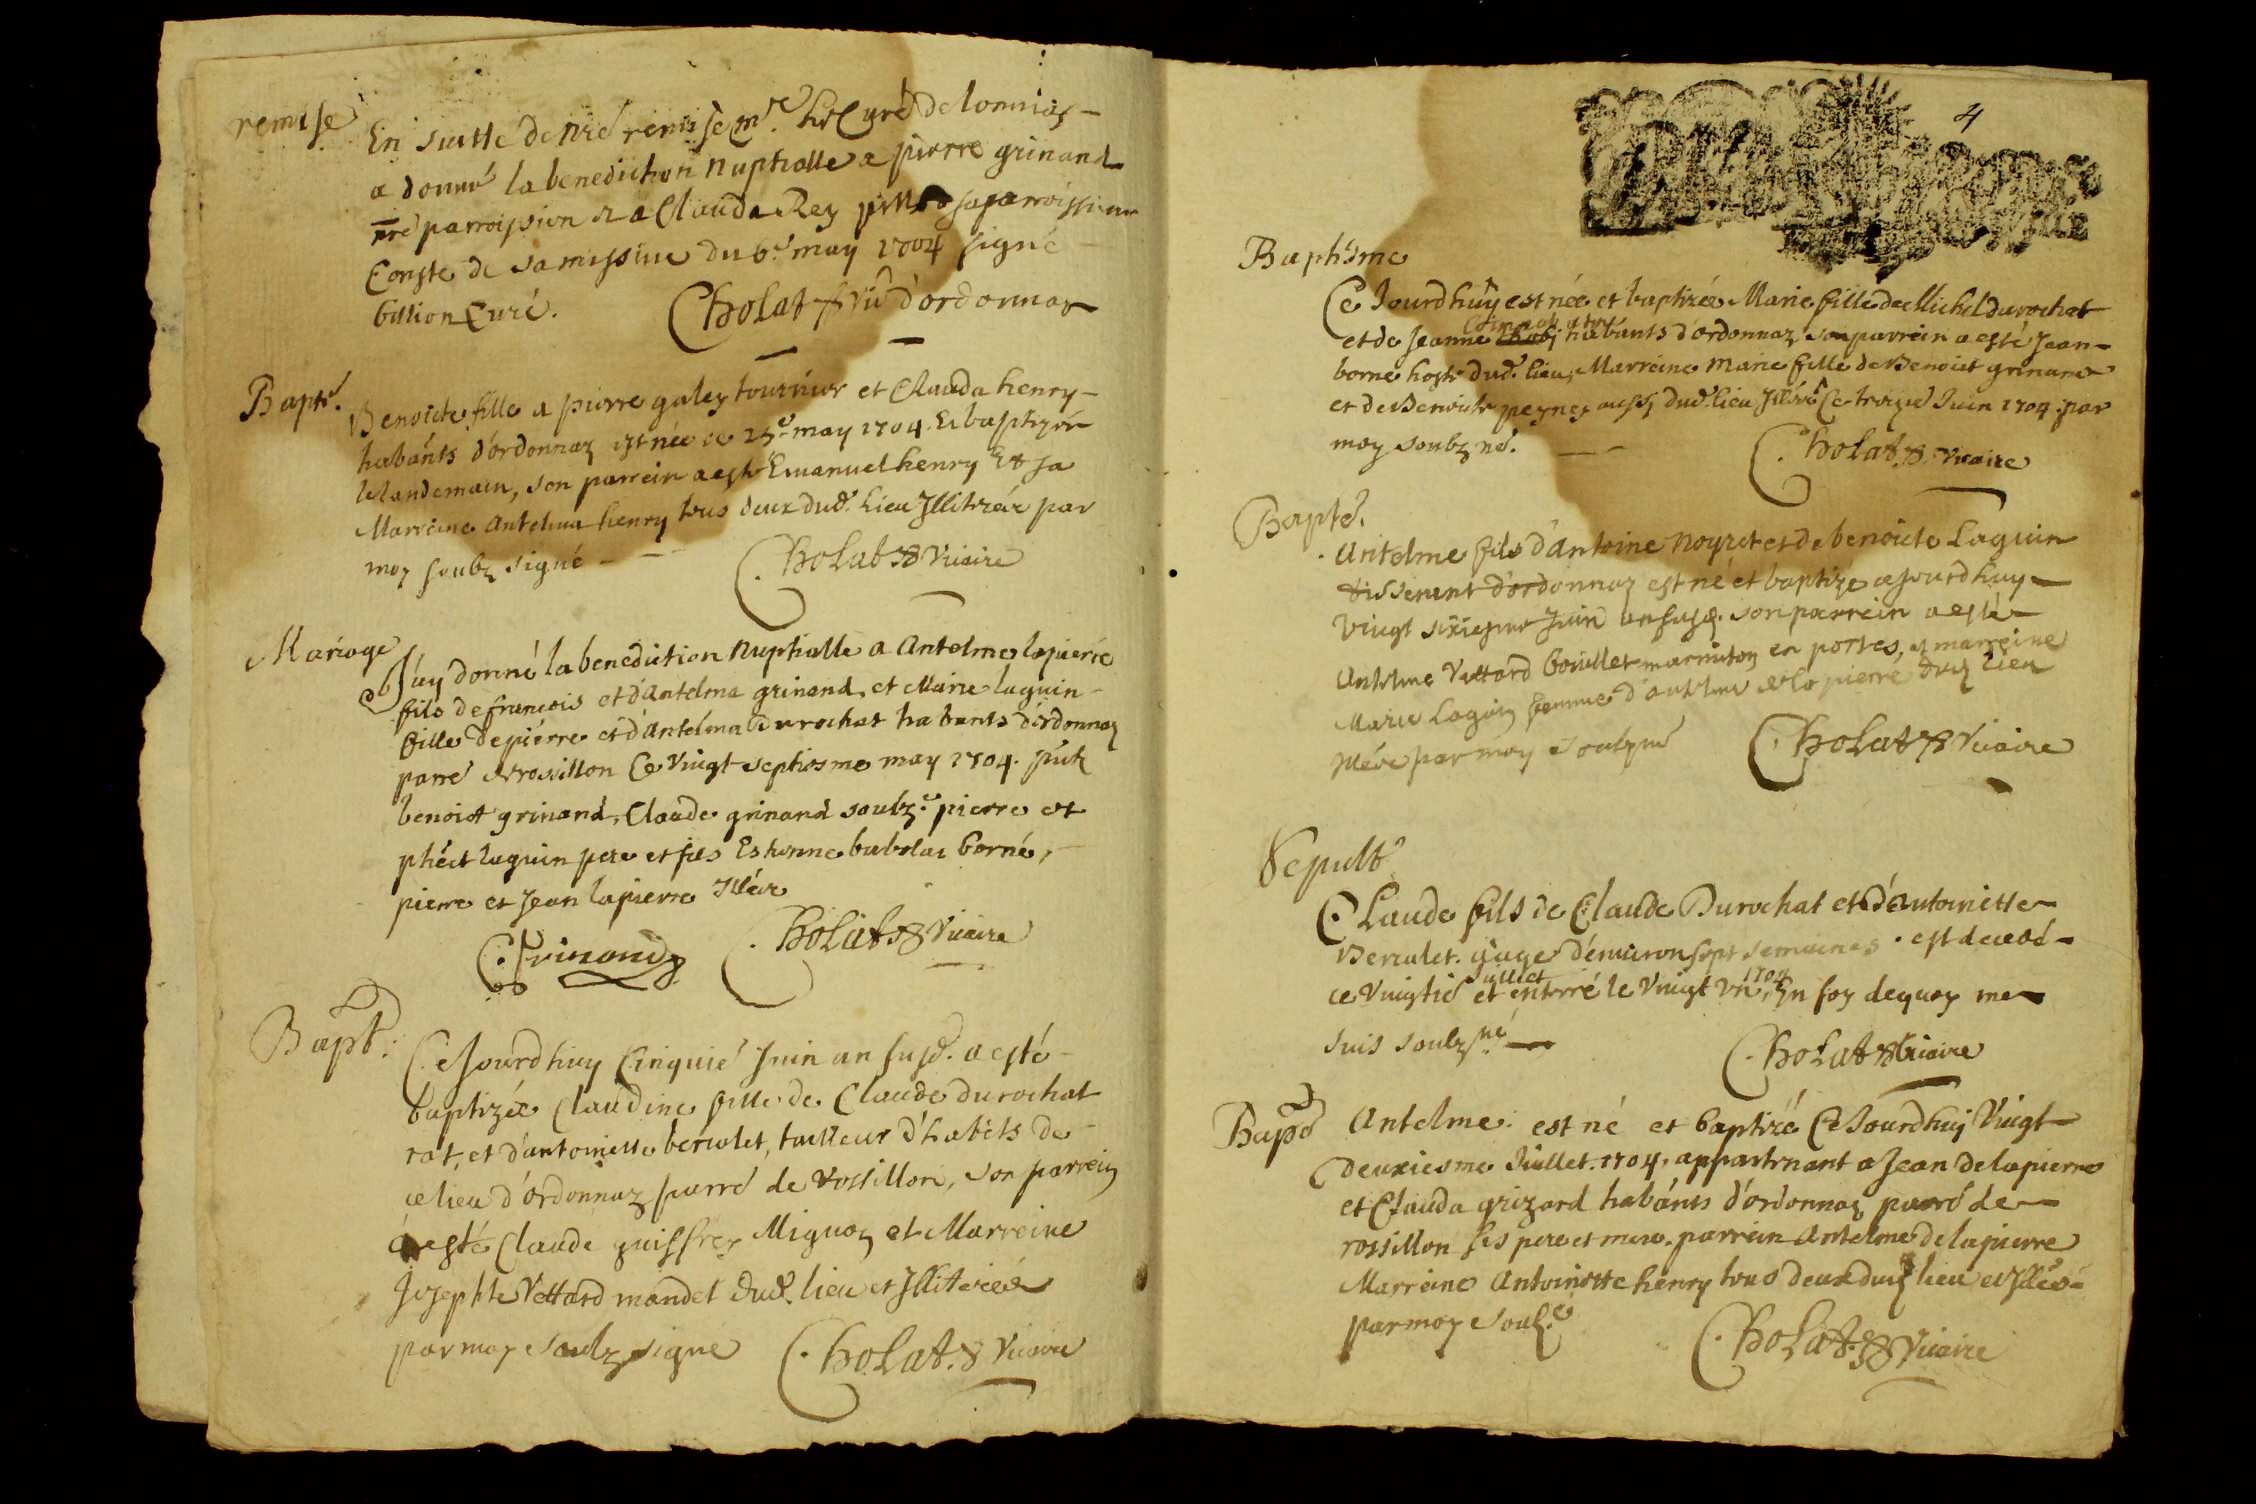 remise
En suitte de nre remise mre le Curé de lomnaz
a donné la benediction nuptialle a pierre grinand
nre parroissien et a Clauda Rey sa parroissienne
Conste de sa missive du 6e may 1704 signé
billion Curé. Cholat vic d'ordonnaz
Bapte.
Benoicte fille a pierre galey tournier et Clauda henry
habants d'ordonnaz est née ce 25e may 1704. Et baptizée
le landemain, son parrein a esté Emanuel henry Et sa
Marreine Antelma henry tous deux dud. lieu Illitrée par
moy soubz signé Cholat Vicaire
Mariage
J'ay donné la benediction nuptialle a Antelme lapierre
fils de francois et d'Antelma grinand, et Marie laguin
fille de pierre et d'Antelma durochat habants d'ordonnaz
parre de rossillon Ce Vingt septiesme may 1704.
benoist grinand, Claude grinand soubz.e pierre et
laguin pere et fils Estienne borné,
pierre et Jean lapierre Illér
C. Grinand Cholat Vicaire
Bapt.
Ce Jourdhuy Cinquié Juin an susd. a esté
baptizée Claudine fille de Claude durochat
rat, et d'antoinette berculet, tailleur d'habits de
ce lieu d'ordonnaz parre de rossillon, son parrein
a esté Claude guiffrey Mignoz et Marreine
Josephte Vettard mandet dud. lieu et Illiterées
par moy soubz signé Cholat. Vicaire
4
Baptisme
Ce Jourdhuy est née et baptizée Marie fille de Michel durochat
et de Jeanne habants d'ordonnaz son parrein a esté Jean
borne hoste dud. lieu, Marreine Marie fille de Benoist grinand
et de Benoicte peyney aussj dud. lieu Illérés Ce treizie Juin 1704. par
moy soubz né. Cholat. Vicaire
Bapte.
Antelme fils d'Antoine Noyret et de benoicte Laguin
tisserent d'ordonnaz est né et baptizé ce Jourdhuy
Vingt sixiesme Juin an susd. son parrein a esté
Antelme Vettard bouillet marniton en portes, et marreine
Marie Laguin femme d'antelme de la pierre dud. lieu
Illére par moy soubzné Cholat Vicaire
Sepult
Claude fils de Claude Durochat et d'Antoinette
Berculet. gage d'environ sept semaines. est decedé
Juillet 1704
ce Vingtié et enterré le Vingt Vn, En foy dequoy me
suis soubz né Cholat Vicaire
Bapt
Antelme. est né et baptizé Ce Jourdhuy Vingt
deuxiesme Juillet. 1704. appartenant a Jean de lapierre
et Clauda grizard habánts d'ordonnaz parré de
rossillon ses pere et mere. parrein Antelme de lapierre
Marreine Antoinette henry tous deux dud lieu et Illés
par moy soub.é Cholat. Vicaire